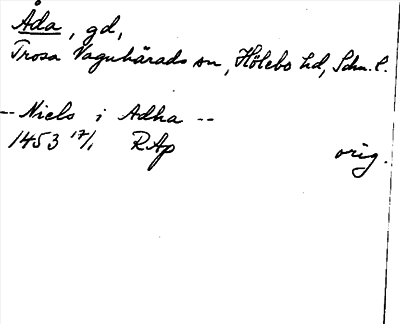 Åda, gd,
Trosa Vagnhärads sn, Hölebo hd, Sdm. l.
-- Niels i Adha --
1453 17/1 RAp orig.